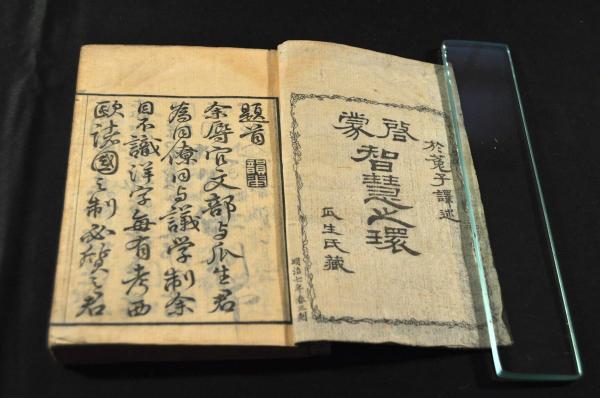 於菟子譯述
啓蒙
智慧之環
瓜生氏藏
明治七年春三刻
題首
余辱官文部与瓜生君
為同僚日与議学制余
目不識洋字每有考西
歐諸國之制必質之君